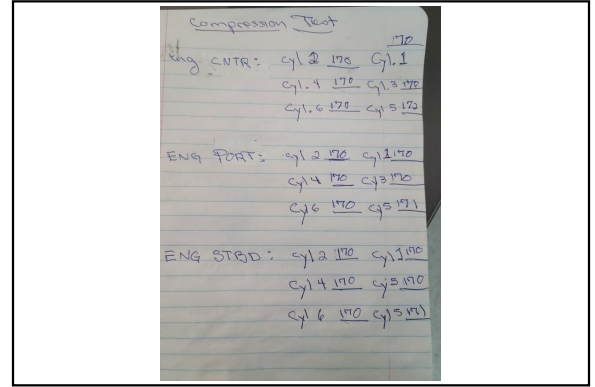 Compression Test
170
Eng CNTR: Cyl 2 170 Cyl.1
Cyl. 4 170 Cyl.3 170
Cyl. 6 170 Cyl 5 172
ENG PORT: Cyl 2 170 Cyl 1 170
Cyl 4 170 Cyl 3 170
Cyl 6 170 Cyl 5 171
ENG STBD: Cyl 2 170 Cyl 1 170
Cyl 4 170 Cyl 3 170
Cyl 6 170 Cyl 5 171